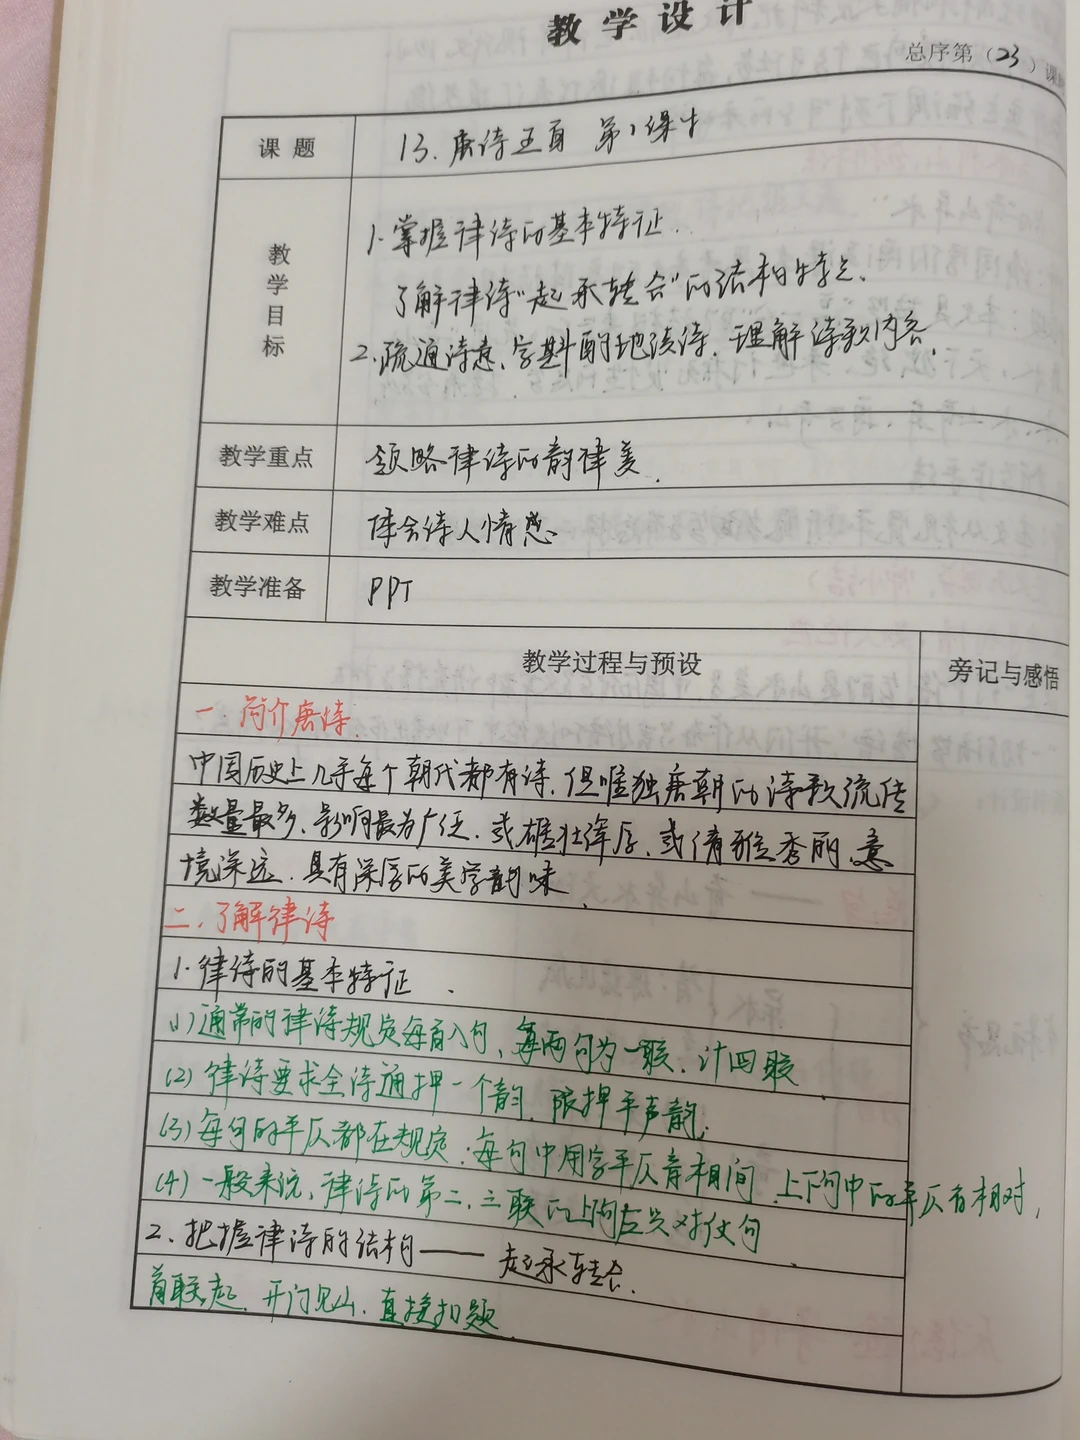 教学设计
总序第（23）课
课题 13.唐诗五首 第1课时
教学目标
1.掌握律诗的基本特征.
了解律诗"起承转合"的结构特点.
2.疏通诗意、字斟酌地读诗.理解诗歌内容.
教学重点 领略律诗的韵律美.
教学难点 体会诗人情感
教学准备 PPT
教学过程与预设 旁记与感悟
一.简介唐诗.
中国历史上几乎每个朝代都有诗.但唯独唐朝的诗歌流传
数量最多、影响最为广泛.或雄壮浑厚、或清雅秀丽、意
境深远.具有深厚的美学韵味.
二.了解律诗
1.律诗的基本特征.
(1)通常的律诗规定每首八句，每两句为一联.计四联.
(2)律诗要求全诗通押一个韵.限押平声韵.
(3)每句的平仄都在规定.每句中用字平仄音相间.上下句中的平仄音相对，
(4)一般来说，律诗的第二.三联的上下句为对仗句.
2.把握律诗的结构——起承转合.
首联起.开门见山.直接扣题.